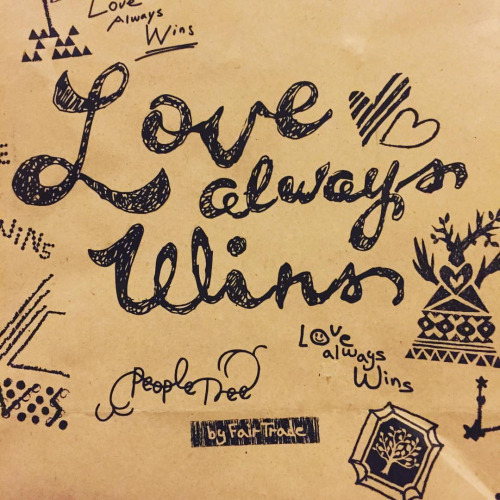 Love
Always
Wins
Love
always
Wins
WiNS
Love
always
Wins
People Tree
by Fair Trade